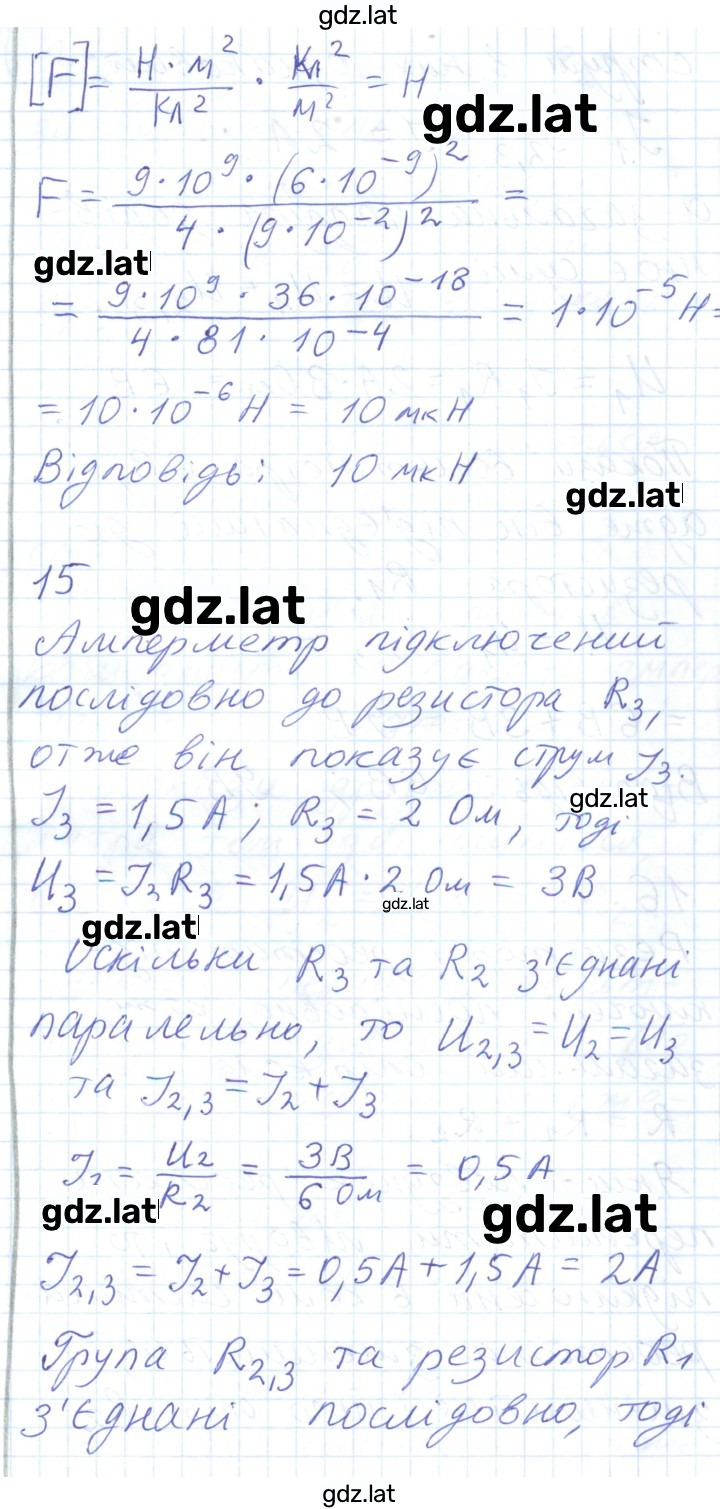 gdz.lat
[F] = Н·м²/Кл² · Кл²/м² = Н
gdz.lat
F = 9·10⁹·(6·10⁻⁹)² / 4·(9·10⁻²)² =
gdz.lat
= 9·10⁹·36·10⁻¹⁸ / 4·81·10⁻⁴ = 1·10⁻⁵Н=
= 10·10⁻⁶Н = 10 мкН
Відповідь: 10 мкН
gdz.lat
15
gdz.lat
Амперметр підключений
послідовно до резистора R₃,
отже він показує струм I₃.
gdz.lat
I₃ = 1,5 А; R₃ = 2 Ом, тоді
U₃ = I₃R₃ = 1,5А·2 Ом = 3В
gdz.lat
gdz.lat
Оскільки R₃ та R₂ з'єднані
паралельно, то U₂,₃ = U₂ = U₃
та I₂,₃ = I₂ + I₃
I₂ = U₂/R₂ = 3В/6 Ом = 0,5 А
gdz.lat
gdz.lat
I₂,₃ = I₂ + I₃ = 0,5А + 1,5А = 2А
Група R₂,₃ та резистор R₁
з'єднані послідовно, тоді
gdz.lat